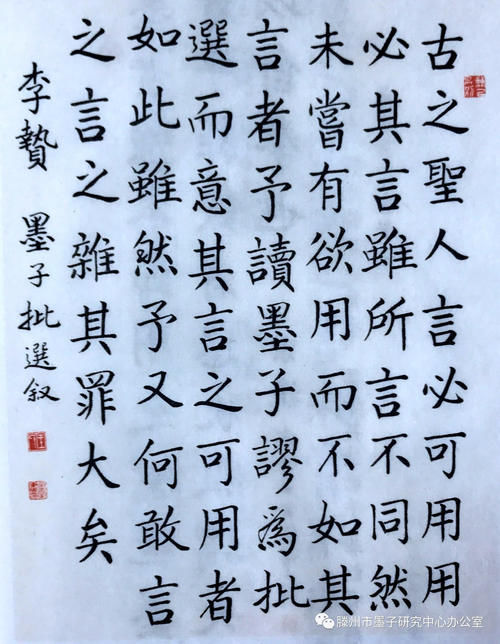 古之聖人言必可用用
必其言雖所言不同然
未嘗有欲用而不如其
言者予讀墨子謬為批
選而意其言之可用者
如此雖然予又何敢言
之言之雜其罪大矣
李贄 墨子批選叙
滕州市墨子研究中心办公室